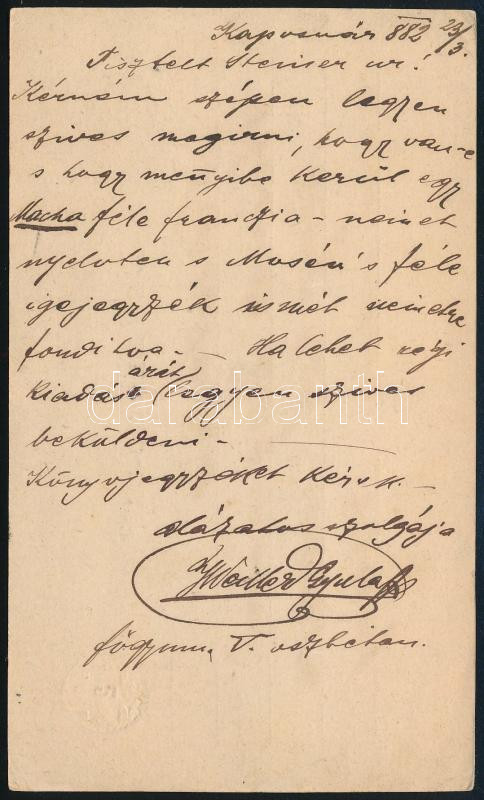 Kaposvár 882 23/3.
Tisztelt Steiner ur!
Kérném szépen legyen
szives megirni, hogy van-e
s hogy mennyibe kerül egy
Macha féle franczia - német
nyelvtan s Mosén's féle
igejegyzék ismét németre
forditva - Ha lehet régi
kiadást árát legyen szives
beküldeni -
Könyvjegyzéket kérek -
alázatos szolgája
Gyula
főgymn. V. oszt.
darabanth